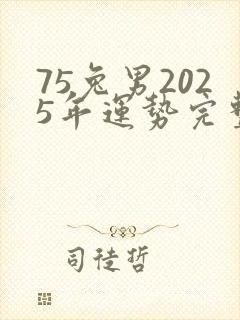 75兔男202
5年運势完整
司徒哲